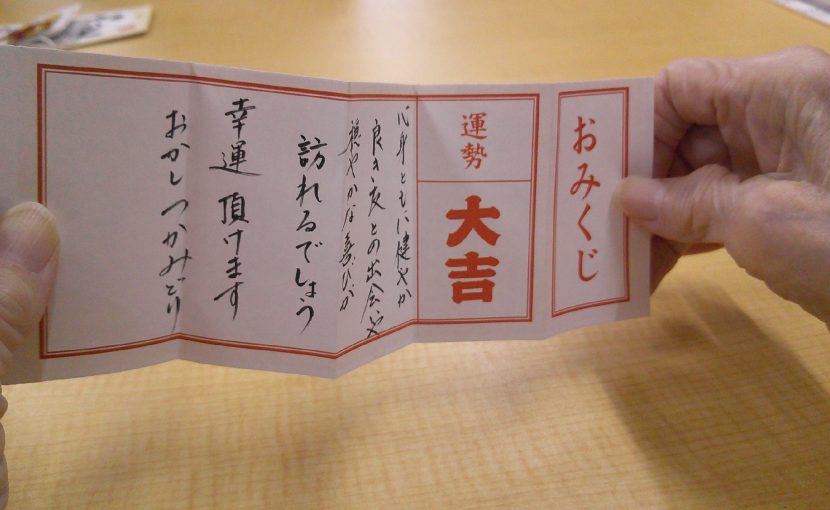 おみくじ
運勢
大吉
心身ともに健やか
良き友との出会いや
穏やかな喜びが
訪れるでしょう
幸運 頂けます
おかしつかみどり